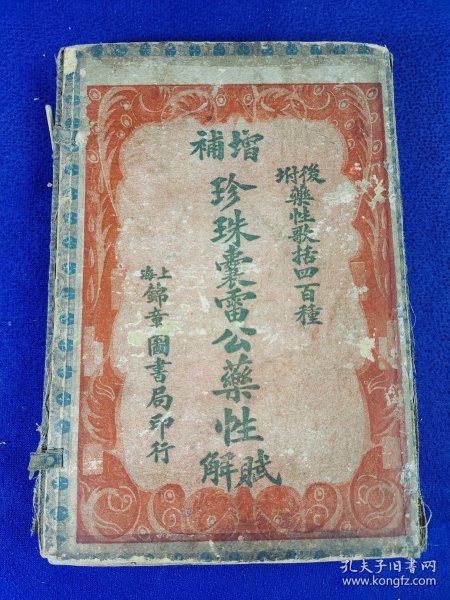 後附藥性歌括四百種
增補
珍珠囊雷公藥性
賦解
上海錦章圖書局印行
孔夫子旧书网
www.kongfz.com